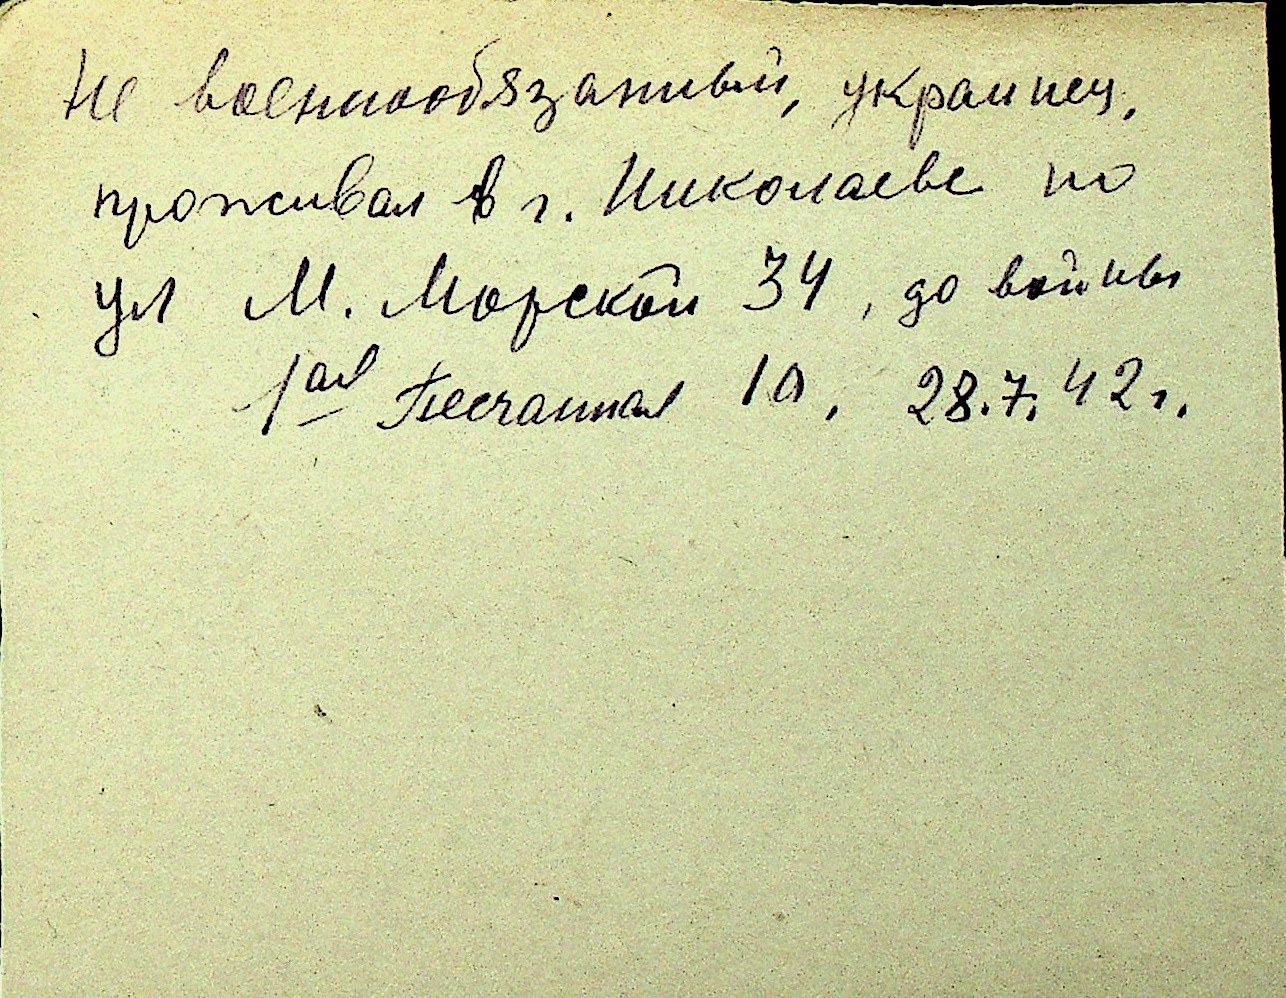 Не военнообязанный, украинец,
проживал в г. Николаеве по
ул М. Морской 34, до войны
1ая Песчанная 10, 28.7.42 г.